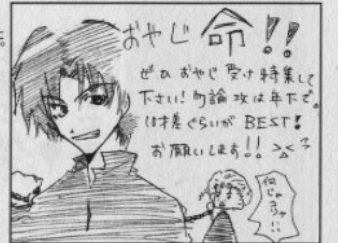 おやじ命!!
ぜひおやじ受け特集して
下さい!勿論攻は年下で。
10才差ぐらいがBEST!
お願いします!!
何じゃコリャ!!